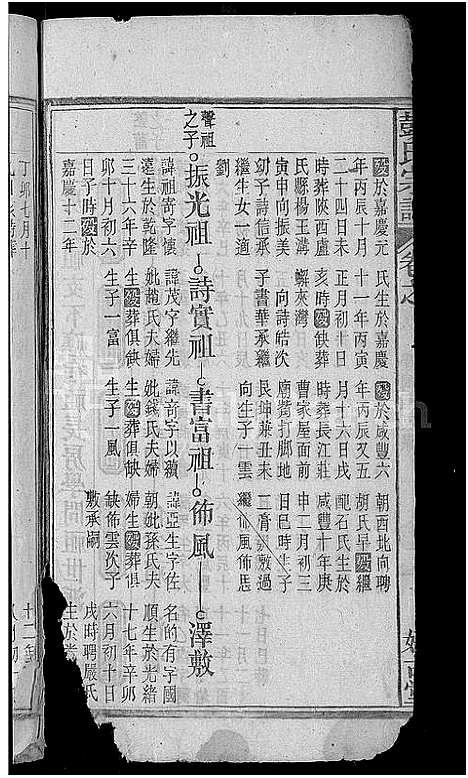 彭氏宗譜
卷之
歿於嘉慶元
年丙辰十月
二十四日未
時葬陝西盧
氏縣楊王溝
寅申向振美
幼子詩信承
繼生女一適
劉
氏生於嘉慶
十一年丙寅
正月初十日
亥時歿俠葬
蠏來灣
向詩皓次
子書華承繼
歿於咸豐六
年丙辰又五
月十六日戌
時葬長江莊
曹家屋面前
廟嘴打腳地
艮坤兼丑未
向生子一雲
朝西北向聘
胡氏早歿繼
配石氏生於
咸豐十年庚
申二月初三
日巳時生子
繼
聲祖
之子
振光祖
詩實祖
書富祖
佈風
澤敷
諱祖寄字懷
遠生於乾隆
三十六年辛
卯十月初六
日子時歿於
嘉慶十二年
諱茂字繼先
妣龍氏夫婦
生歿葬俱缺
生子一富
諱奇字以續
妣錢氏夫婦
生歿葬俱缺
生子一風
諱亞生字佐
朝妣孫氏夫
婦生歿葬俱
缺佈雲次子
敷承嗣
名的有字國
順生於光緒
十七年辛卯
六月初十日
戌時聘嚴氏
生於光
丁卯七月十